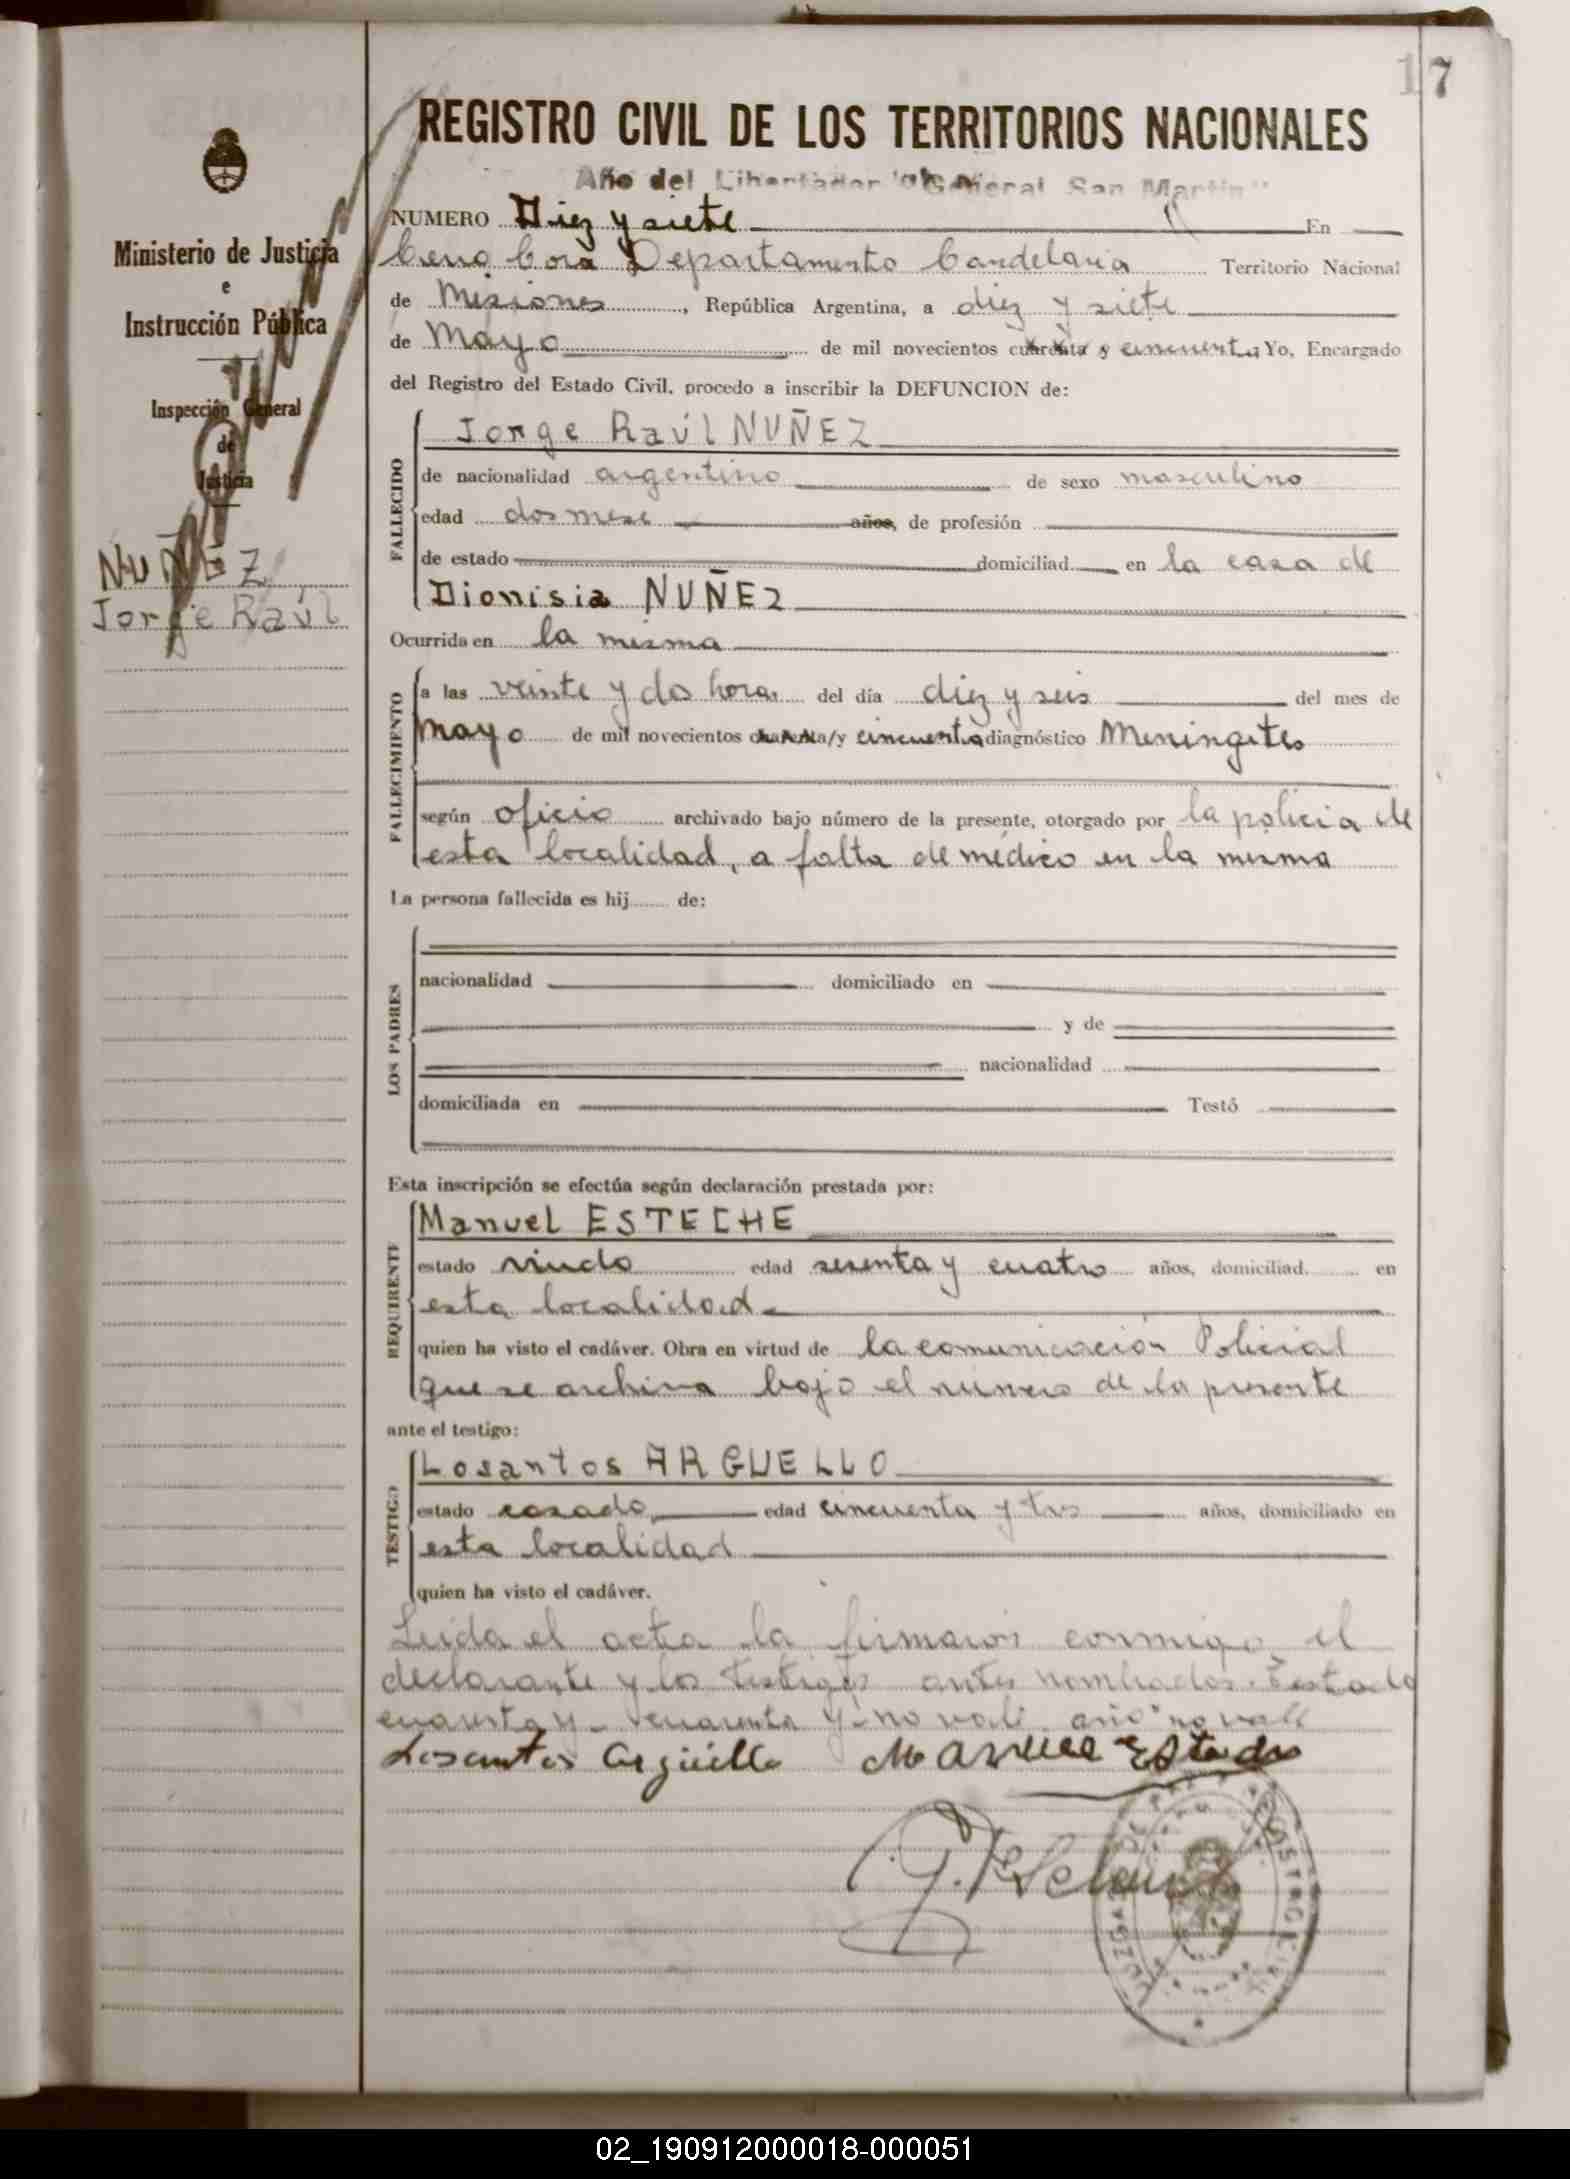 17
REGISTRO CIVIL DE LOS TERRITORIOS NACIONALES
Año del Libertador General San Martín"
NUMERO Diez y siete En
Cerro Corá Departamento Candelaria Territorio Nacional
de Misiones, República Argentina, a diez y siete
de Mayo de mil novecientos cuarenta y cincuenta, Yo, Encargado
del Registro del Estado Civil, procedo a inscribir la DEFUNCION de:
Ministerio de Justicia
e
Instrucción Pública
Inspección General
de
Justicia
NUÑEZ
Jorge Raúl
FALLECIDO
Jorge Raúl NUÑEZ
de nacionalidad argentino de sexo masculino
edad dos mese años, de profesión
de estado domiciliad en la casa de
Dionisia NUÑEZ
Ocurrida en la misma
FALLECIMIENTO
a las veinte y dos horas del día diez y seis del mes de
mayo de mil novecientos cuarenta/y cincuenta diagnóstico Meningitis
según oficio archivado bajo número de la presente, otorgado por la policia de
esta localidad, a falta de médico en la misma
La persona fallecida es hij de:
LOS PADRES
nacionalidad domiciliado en
y de
nacionalidad
domiciliada en Testó
Esta inscripción se efectúa según declaración prestada por:
REQUIRENTE
Manuel ESTECHE
estado viudo edad sesenta y cuatro años, domiciliad en
esta localidad
quien ha visto el cadáver. Obra en virtud de la comunicación Policial
que se archiva bajo el número de la presente
ante el testigo:
TESTIGO
Losantos ARGUELLO
estado casado, edad cincuenta y tres años, domiciliado en
esta localidad
quien ha visto el cadáver.
Leida el acta la firmaron conmigo el
declarante y los testigos antes nombrados. Testado
cuarenta y - cuarenta y - no vale. año" no vale
Losantos Argüello Manuel
02_190912000018-000051